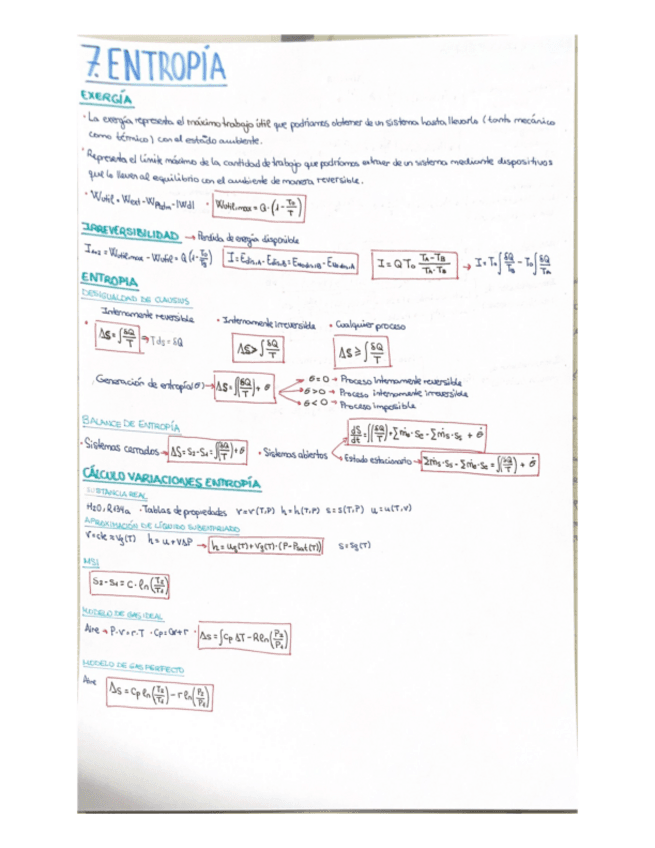 7. ENTROPÍA
EXERGÍA
· La exergía representa el máximo trabajo útil que podríamos obtener de un sistema hasta llevarlo (tanto mecánico
como térmico) con el estado ambiente.
· Representa el límite máximo de la cantidad de trabajo que podríamos extraer de un sistema mediante dispositivos
que lo lleven al equilibrio con el ambiente de manera reversible.
· Wútil = Wext - WPatm - |Wd| · Wútil,max = Q·(1 - To/T)
IRREVERSIBILIDAD → Pérdida de energía disponible
I = QTo (TA-TB)/(TA·TB) → I = To∫δQ/TB - To∫δQ/TA
ENTROPIA
DESIGUALDAD DE CLAUSIUS
Internamente reversible · Internamente irreversible · Cualquier proceso
· ΔS = ∫δQ/T → Tds = δQ ΔS > ∫δQ/T ΔS ≥ ∫δQ/T
Generación de entropía (σ) → ΔS = ∫(δQ/T) + σ
σ = 0 → Proceso internamente reversible
σ > 0 → Proceso internamente irreversible
σ < 0 → Proceso imposible
BALANCE DE ENTROPÍA
· Sistemas cerrados → ΔS = S2 - S1 = ∫(δQ/T) + σ · Sistemas abiertos
dS/dt = ∫(δQ/T) + Σṁe·Se - Σṁs·Ss + σ̇
Estado estacionario → Σṁs·Ss - Σṁe·Se = ∫(δQ/T) + σ̇
CÁLCULO VARIACIONES ENTROPÍA
SUSTANCIA REAL
H2O, R134a · Tablas de propiedades v=v(T,P) h=h(T,P) s=s(T,P) u=u(T,v)
APROXIMACIÓN DE LÍQUIDO SUBENFRIADO
h = u + vΔP
MSI
S2 - S1 = C·ln(T2/T1)
MODELO DE GAS IDEAL
Aire → P·v = r·T · Cp = Cv + r · Δs = ∫Cp ΔT - R ln(P2/P1)
MODELO DE GAS PERFECTO
Aire Δs = Cp ln(T2/T1) - r ln(P2/P1)